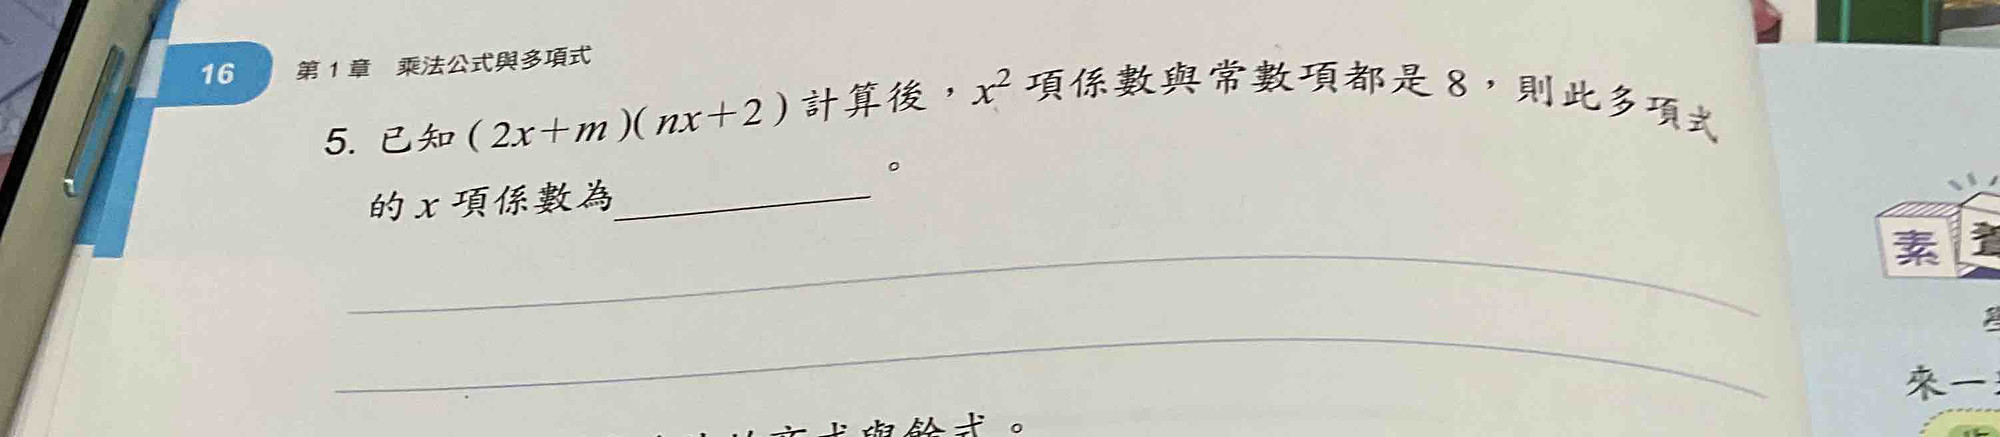 16 第1章 乘法公式與多項式
5. 已知(2x+m)(nx+2)計算後，x²項係數與常數項都是8，則此多項式
的x項係數為__________。
素
來一
式與餘式。